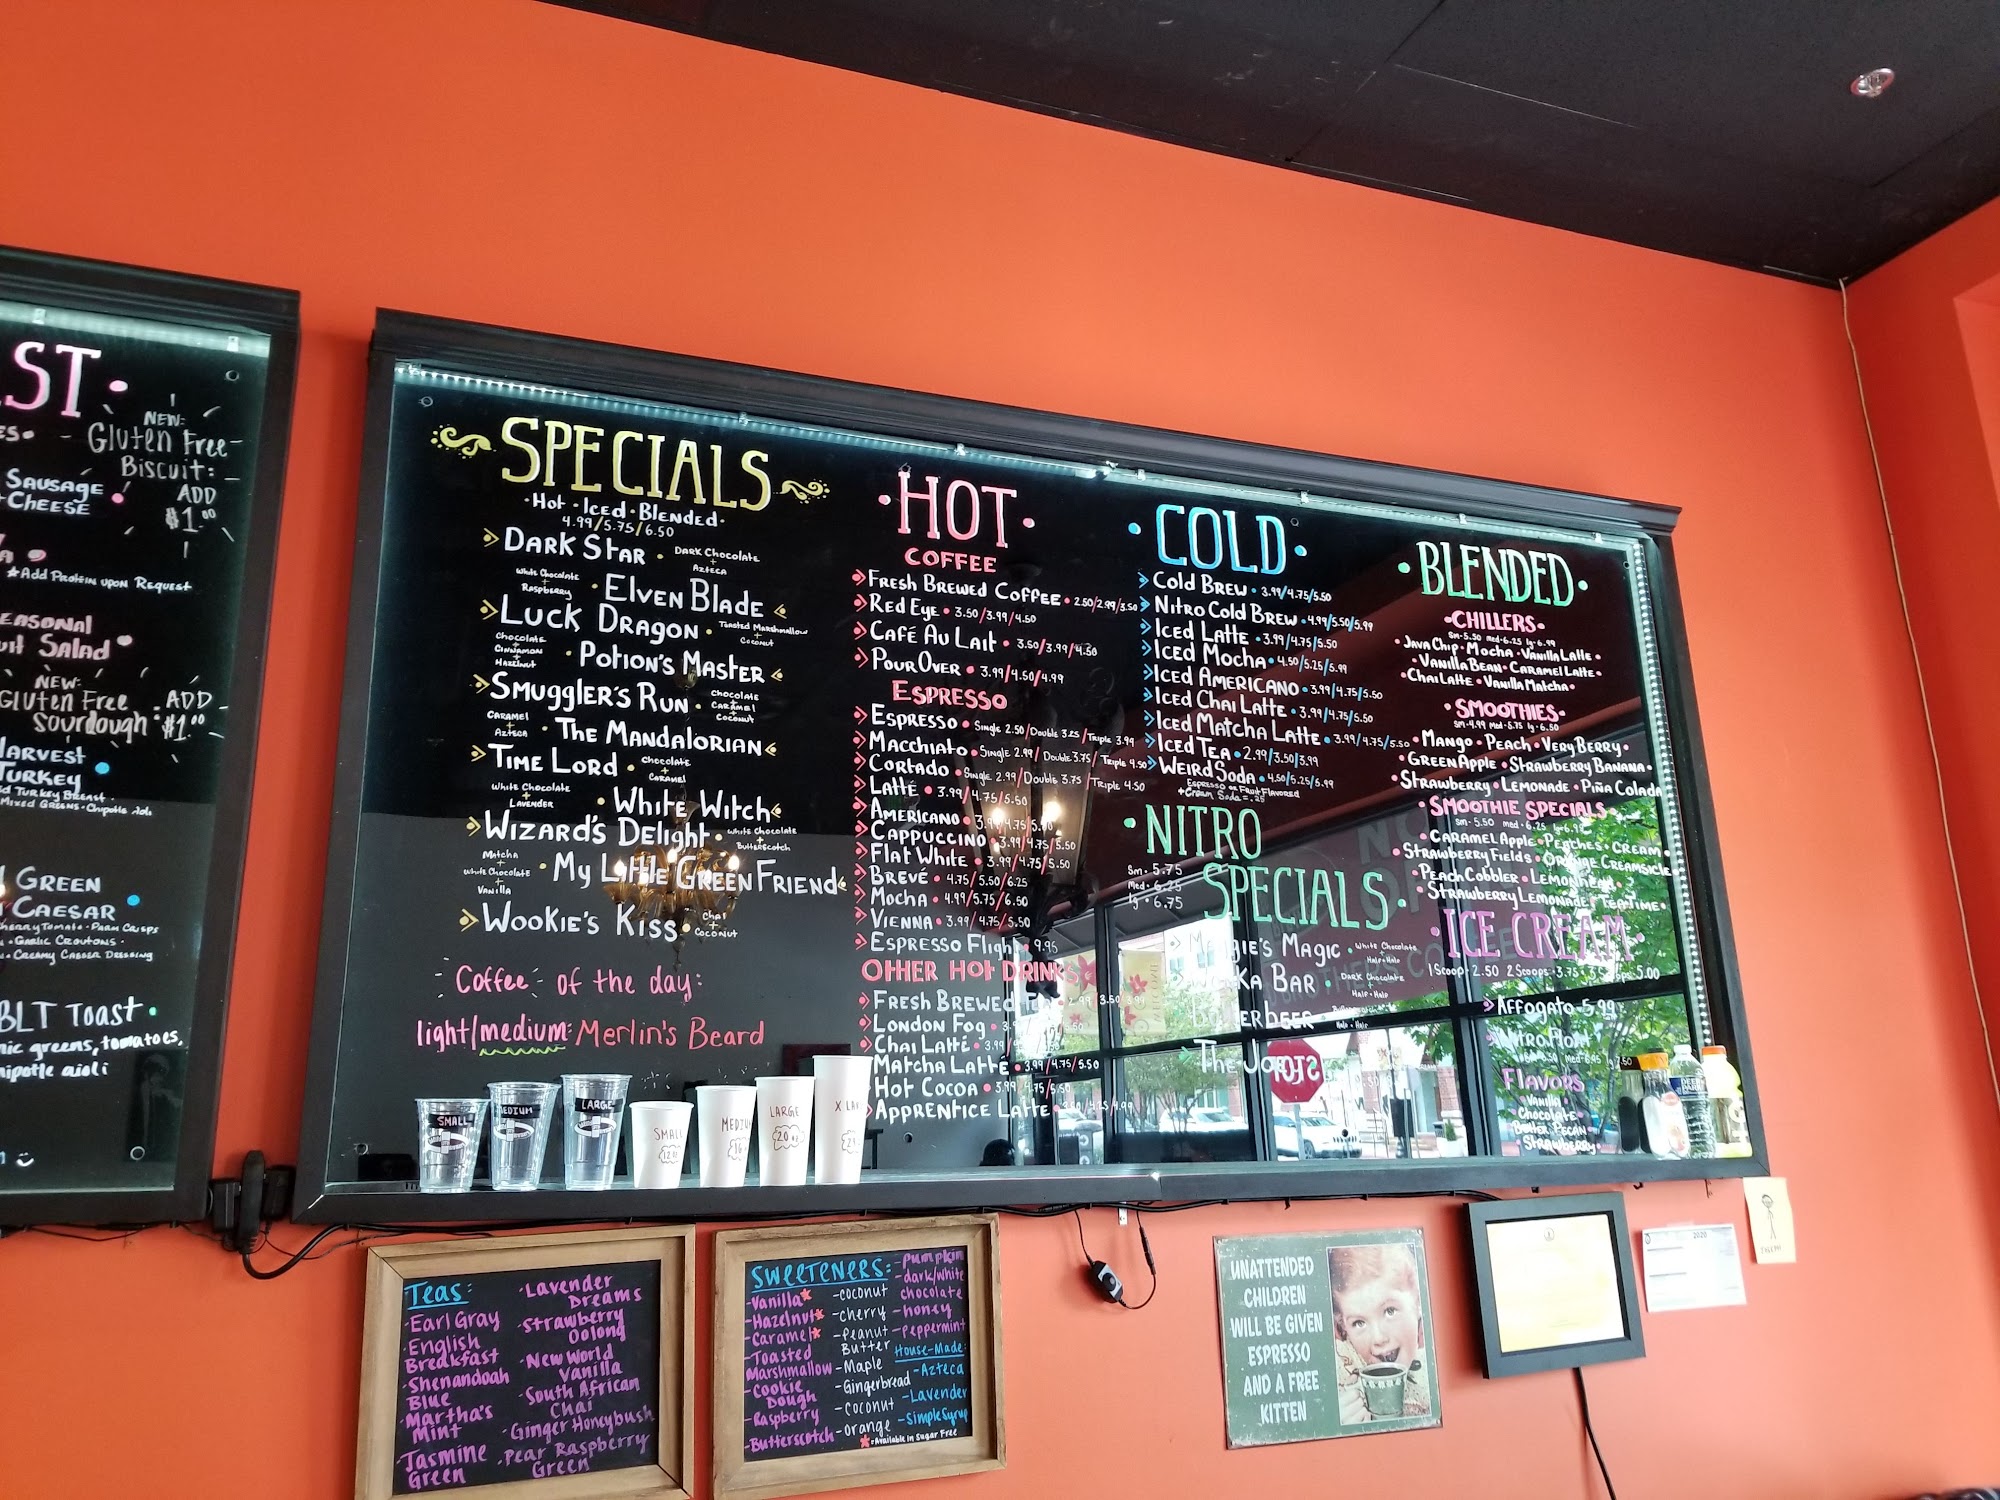 ST
NEW:
Gluten Free
Biscuit:
ADD
$1.00
Sausage
+Cheese
*Add Protein upon Request
Salad
NEW:
Gluten Free
Sourdough
ADD
$1.00
Harvest
Turkey
Turkey Breast
Mixed Greens • Chipotle Aioli
Green
Caesar
Cherry Tomato • Parm Crisps
• Garlic Croutons •
• Creamy Caesar Dressing
BLT Toast
greens, tomatoes,
chipotle aioli
SPECIALS
• Hot • Iced • Blended •
4.99/5.75/6.50
Dark Star • Dark Chocolate + Azteca
White Chocolate + Raspberry • Elven Blade
Luck Dragon • Toasted Marshmallow + Coconut
Chocolate + Cinnamon + Hazelnut • Potion's Master
Smuggler's Run • Chocolate + Caramel + Coconut
Caramel + Azteca • The Mandalorian
Time Lord • Chocolate + Caramel
White Chocolate + Lavender • White Witch
Wizard's Delight • White Chocolate + Butterscotch
Matcha + White Chocolate + Vanilla • My Little Green Friend
Wookie's Kiss • Chai + Coconut
Coffee of the day:
light/medium: Merlin's Beard
SMALL
MEDIUM
LARGE
SMALL
12 oz
MEDIUM
16
LARGE
20 oz
X LA
• HOT •
COFFEE
Fresh Brewed Coffee • 2.50/2.99/3.50
Red Eye • 3.50/3.99/4.50
Café Au Lait • 3.50/3.99/4.50
Pour Over • 3.99/4.50/4.99
ESPRESSO
Espresso • Single 2.50/Double 3.25/Triple 3.99
Macchiato • Single 2.99/Double 3.75/Triple 4.50
Cortado • Single 2.99/Double 3.75/Triple 4.50
Latté • 3.99/4.75/5.50
Americano • 3.99/4.75/5.50
Cappuccino • 3.99/4.75/5.50
Flat White • 3.99/4.75/5.50
Brevé • 4.75/5.50/6.25
Mocha • 4.99/5.75/6.50
Vienna • 3.99/4.75/5.50
Espresso Flight • 9.95
OTHER HOT DRINKS
Fresh Brewed Tea • 2.99/3.50/3.99
London Fog
Chai Latté
Matcha Latté • 3.99/4.75/5.50
Hot Cocoa • 3.99/4.75/5.50
Apprentice Latté
• COLD •
Cold Brew • 3.99/4.75/5.50
Nitro Cold Brew • 4.99/5.50/5.99
Iced Latte • 3.99/4.75/5.50
Iced Mocha • 4.50/5.25/5.99
Iced Americano • 3.99/4.75/5.50
Iced Chai Latte • 3.99/4.75/5.50
Iced Matcha Latte • 3.99/4.75/5.50
Iced Tea • 2.99/3.50/3.99
Weird Soda • 4.50/5.25/5.99
Espresso or Fruit Flavored
+ Cream Soda = .25
• NITRO SPECIALS •
Sm • 5.75
Med • 6.25
lg • 6.75
Magic • White Chocolate + Half + Half
Bar • Dark Chocolate + Half + Half
The
STOP
• BLENDED •
• CHILLERS •
sm-5.50 med-6.25 lg-6.99
• Java Chip • Mocha • Vanilla Latte •
• Vanilla Bean • Caramel Latte •
• Chai Latte • Vanilla Matcha •
• SMOOTHIES •
sm-4.99 med-5.75 lg-6.50
• Mango • Peach • Very Berry •
• Green Apple • Strawberry Banana •
• Strawberry • Lemonade • Piña Colada
• SMOOTHIE SPECIALS
sm-5.50 med-6.25 lg-6.99
• Caramel Apple • Peaches + Cream •
• Strawberry Fields • Orange Creamsicle
• Peach Cobbler • Lemonhead •
• Strawberry Lemonade • Tea Time •
• ICE CREAM •
1 Scoop • 2.50 2 Scoops • 3.75 • 3 Scoops 5.00
Affogato - 5.99
Flavors
• Vanilla •
• Chocolate •
Butter Pecan
• Strawberry •
Teas:
• Earl Gray
• English Breakfast
• Shenandoah Blue
• Martha's Mint
• Jasmine Green
• Lavender Dreams
• Strawberry Oolong
• New World Vanilla
• South African Chai
• Ginger Honeybush
• Pear Raspberry Green
SWEETENERS:
- Vanilla*
- Hazelnut*
- Caramel*
- Toasted Marshmallow
- Cookie Dough
- Raspberry
- Butterscotch
- coconut
- cherry
- Peanut Butter
- Maple
- Gingerbread
- coconut
- orange
- Pumpkin
- dark/white chocolate
- honey
- peppermint
House-Made:
- Azteca
- Lavender
- Simple Syrup
* = Available in Sugar Free
UNATTENDED
CHILDREN
WILL BE GIVEN
ESPRESSO
AND A FREE
KITTEN
2020
JOSEPH